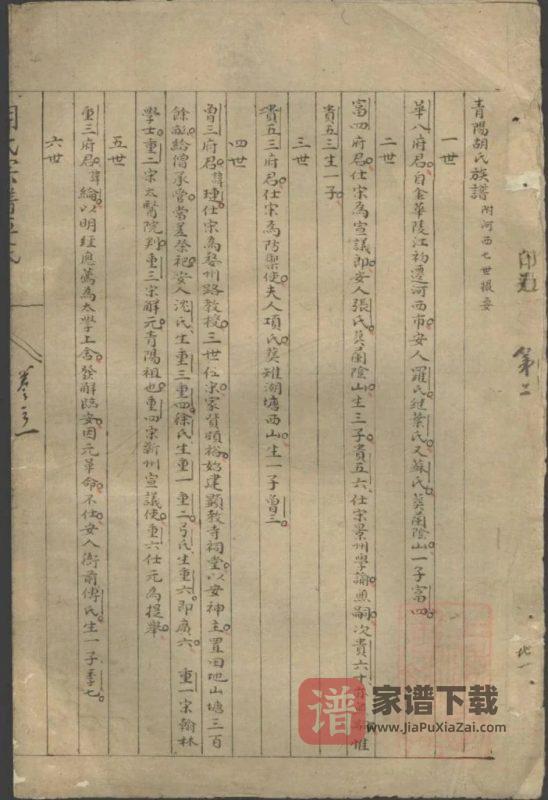 青陽胡氏族譜 附河西七世撮要
一世
華八府君。自金華陵江初遷河西市安人羅氏继葉氏又蘇氏葬蘭陰山一子富四
二世
富四府君。仕宋為宣議郎安人張氏葬蘭陰山生三子貴五六仕宋景州學諭無嗣次貴六
貴五三生一子
三世
貴五三府君。仕宋為防禦使夫人項氏葬雉湖塘西山生一子曾三
四世
曾三府君。諱璉仕宋為婺州路教授三世仕宋家貲頗裕始建顯教寺祠堂以安神主置田地山塘三百
餘畝給僧承管當差祭祀安人沈氏生重三重四徐氏生重一重二弓氏生重六即廣六 重一宋翰林
學士重二宋太醫院判重三宋解元青陽祖也重四宋蘄州宣議使重六仕元為提舉
五世
重三府君。諱綸以明經應薦為太學上舍發解臨安因元革命不仕安人衙前傅氏生一子季七
六世
卷之一
第二
譜 家谱下载
www.JiaPuXiaZai.com